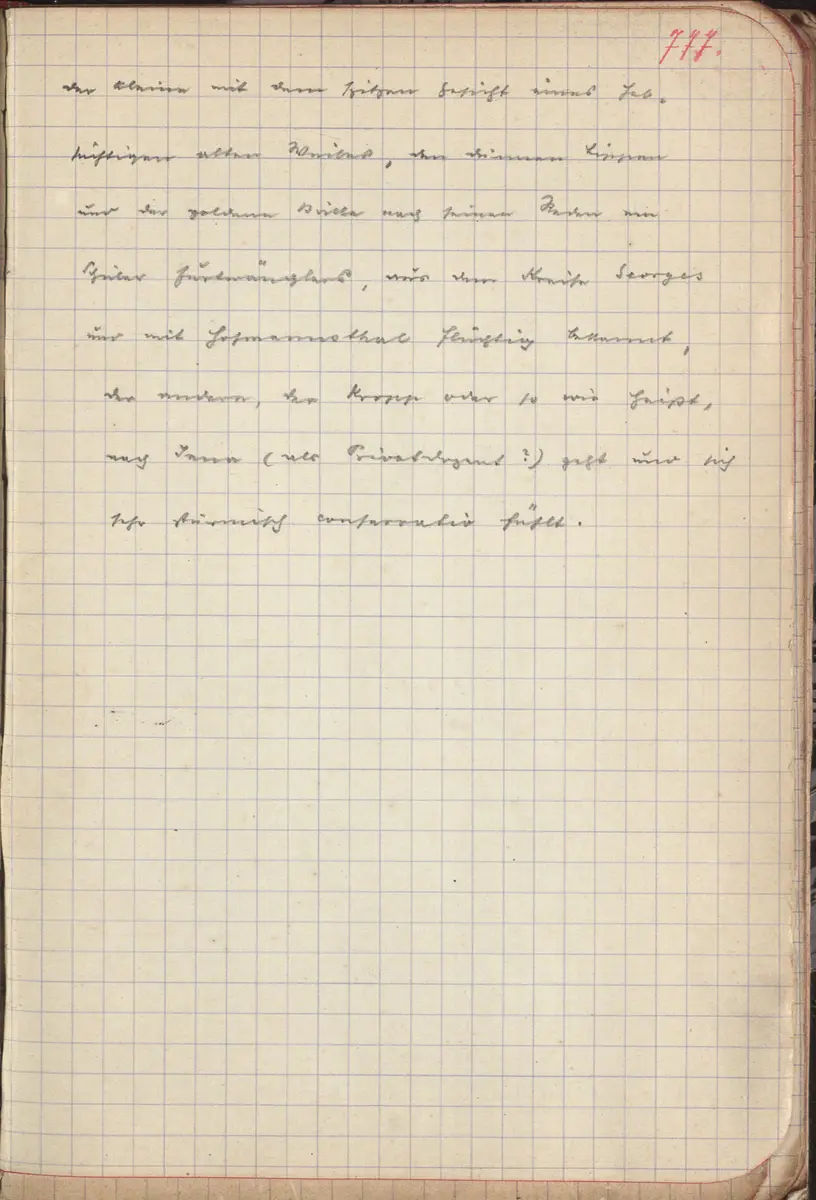 777.
der kleine mit dem spitzen Gesicht eines hab-
süchtigen alten Weibes, den dünnen Lippen
und der goldenen Brille nach seinen Reden ein
Schüler Furtwänglers, aus dem Kreise Georges
und mit Hofmannsthal flüchtig bekannt,
der andere, der Kropp oder so wie heißt,
nach Jena (als Privatdozent?) geht und sich
sehr stürmisch conservativ fühlt.